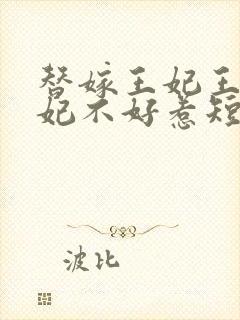 替嫁王妃王
妃不好惹短
波比